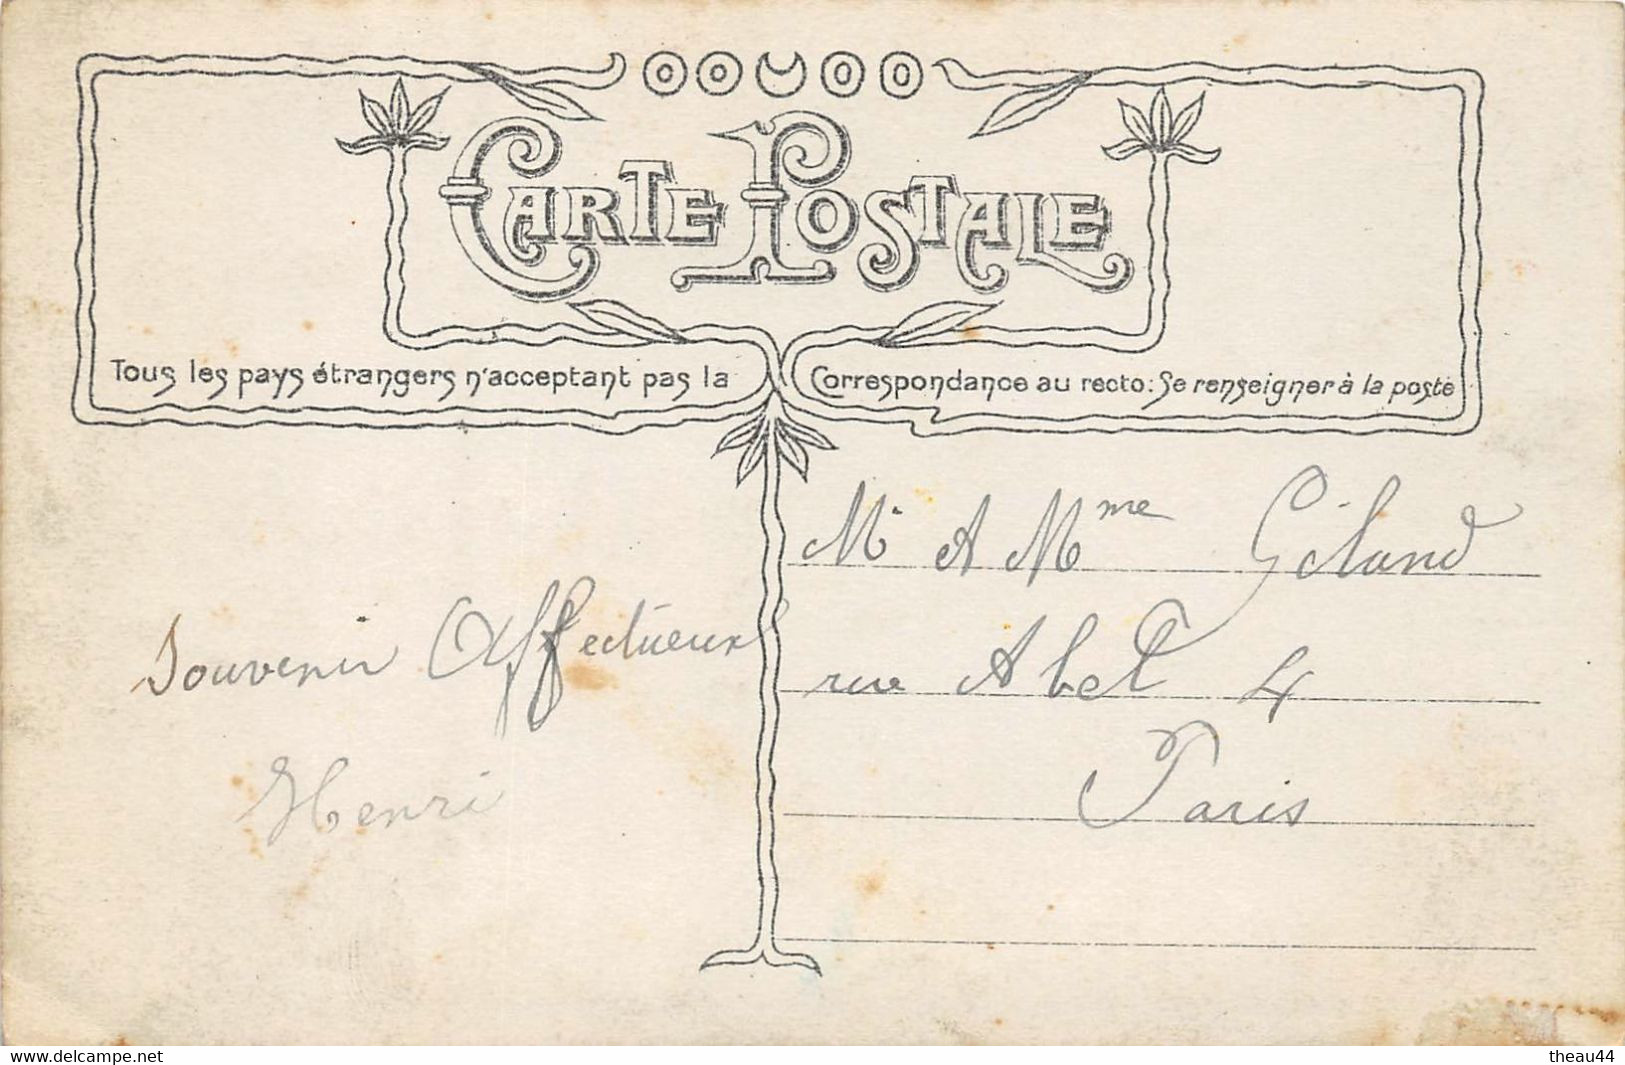 CARTE POSTALE
Tous les pays étrangers n'acceptant pas la Correspondance au recto: Se renseigner à la poste
Mr A Mme Giland
rue Abel 4
Paris
Souvenir Affectueux
Henri
www.delcampe.net
theau44